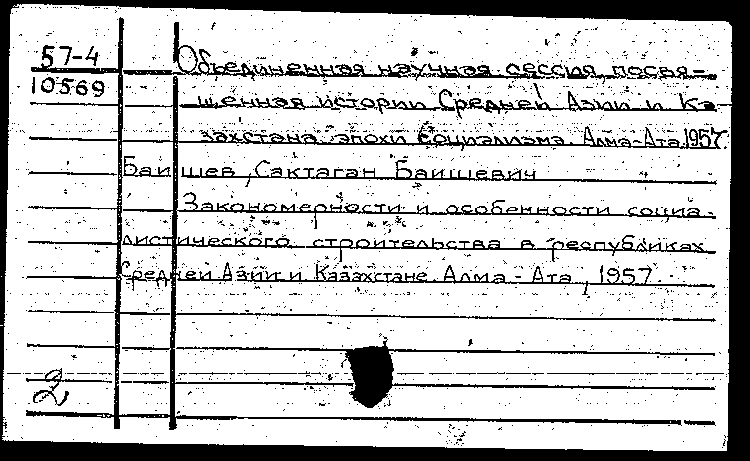 57-4 Объединенная научная сессия, посвя-
10569 щенная истории Средней Азии и Ка-
захстана эпохи социализма. Алма-Ата, 1957
Баишев, Сактаган Баишевич
Закономерности и особенности социа-
листического строительства в республиках
Средней Азии и Казахстане. Алма-Ата, 1957.
2